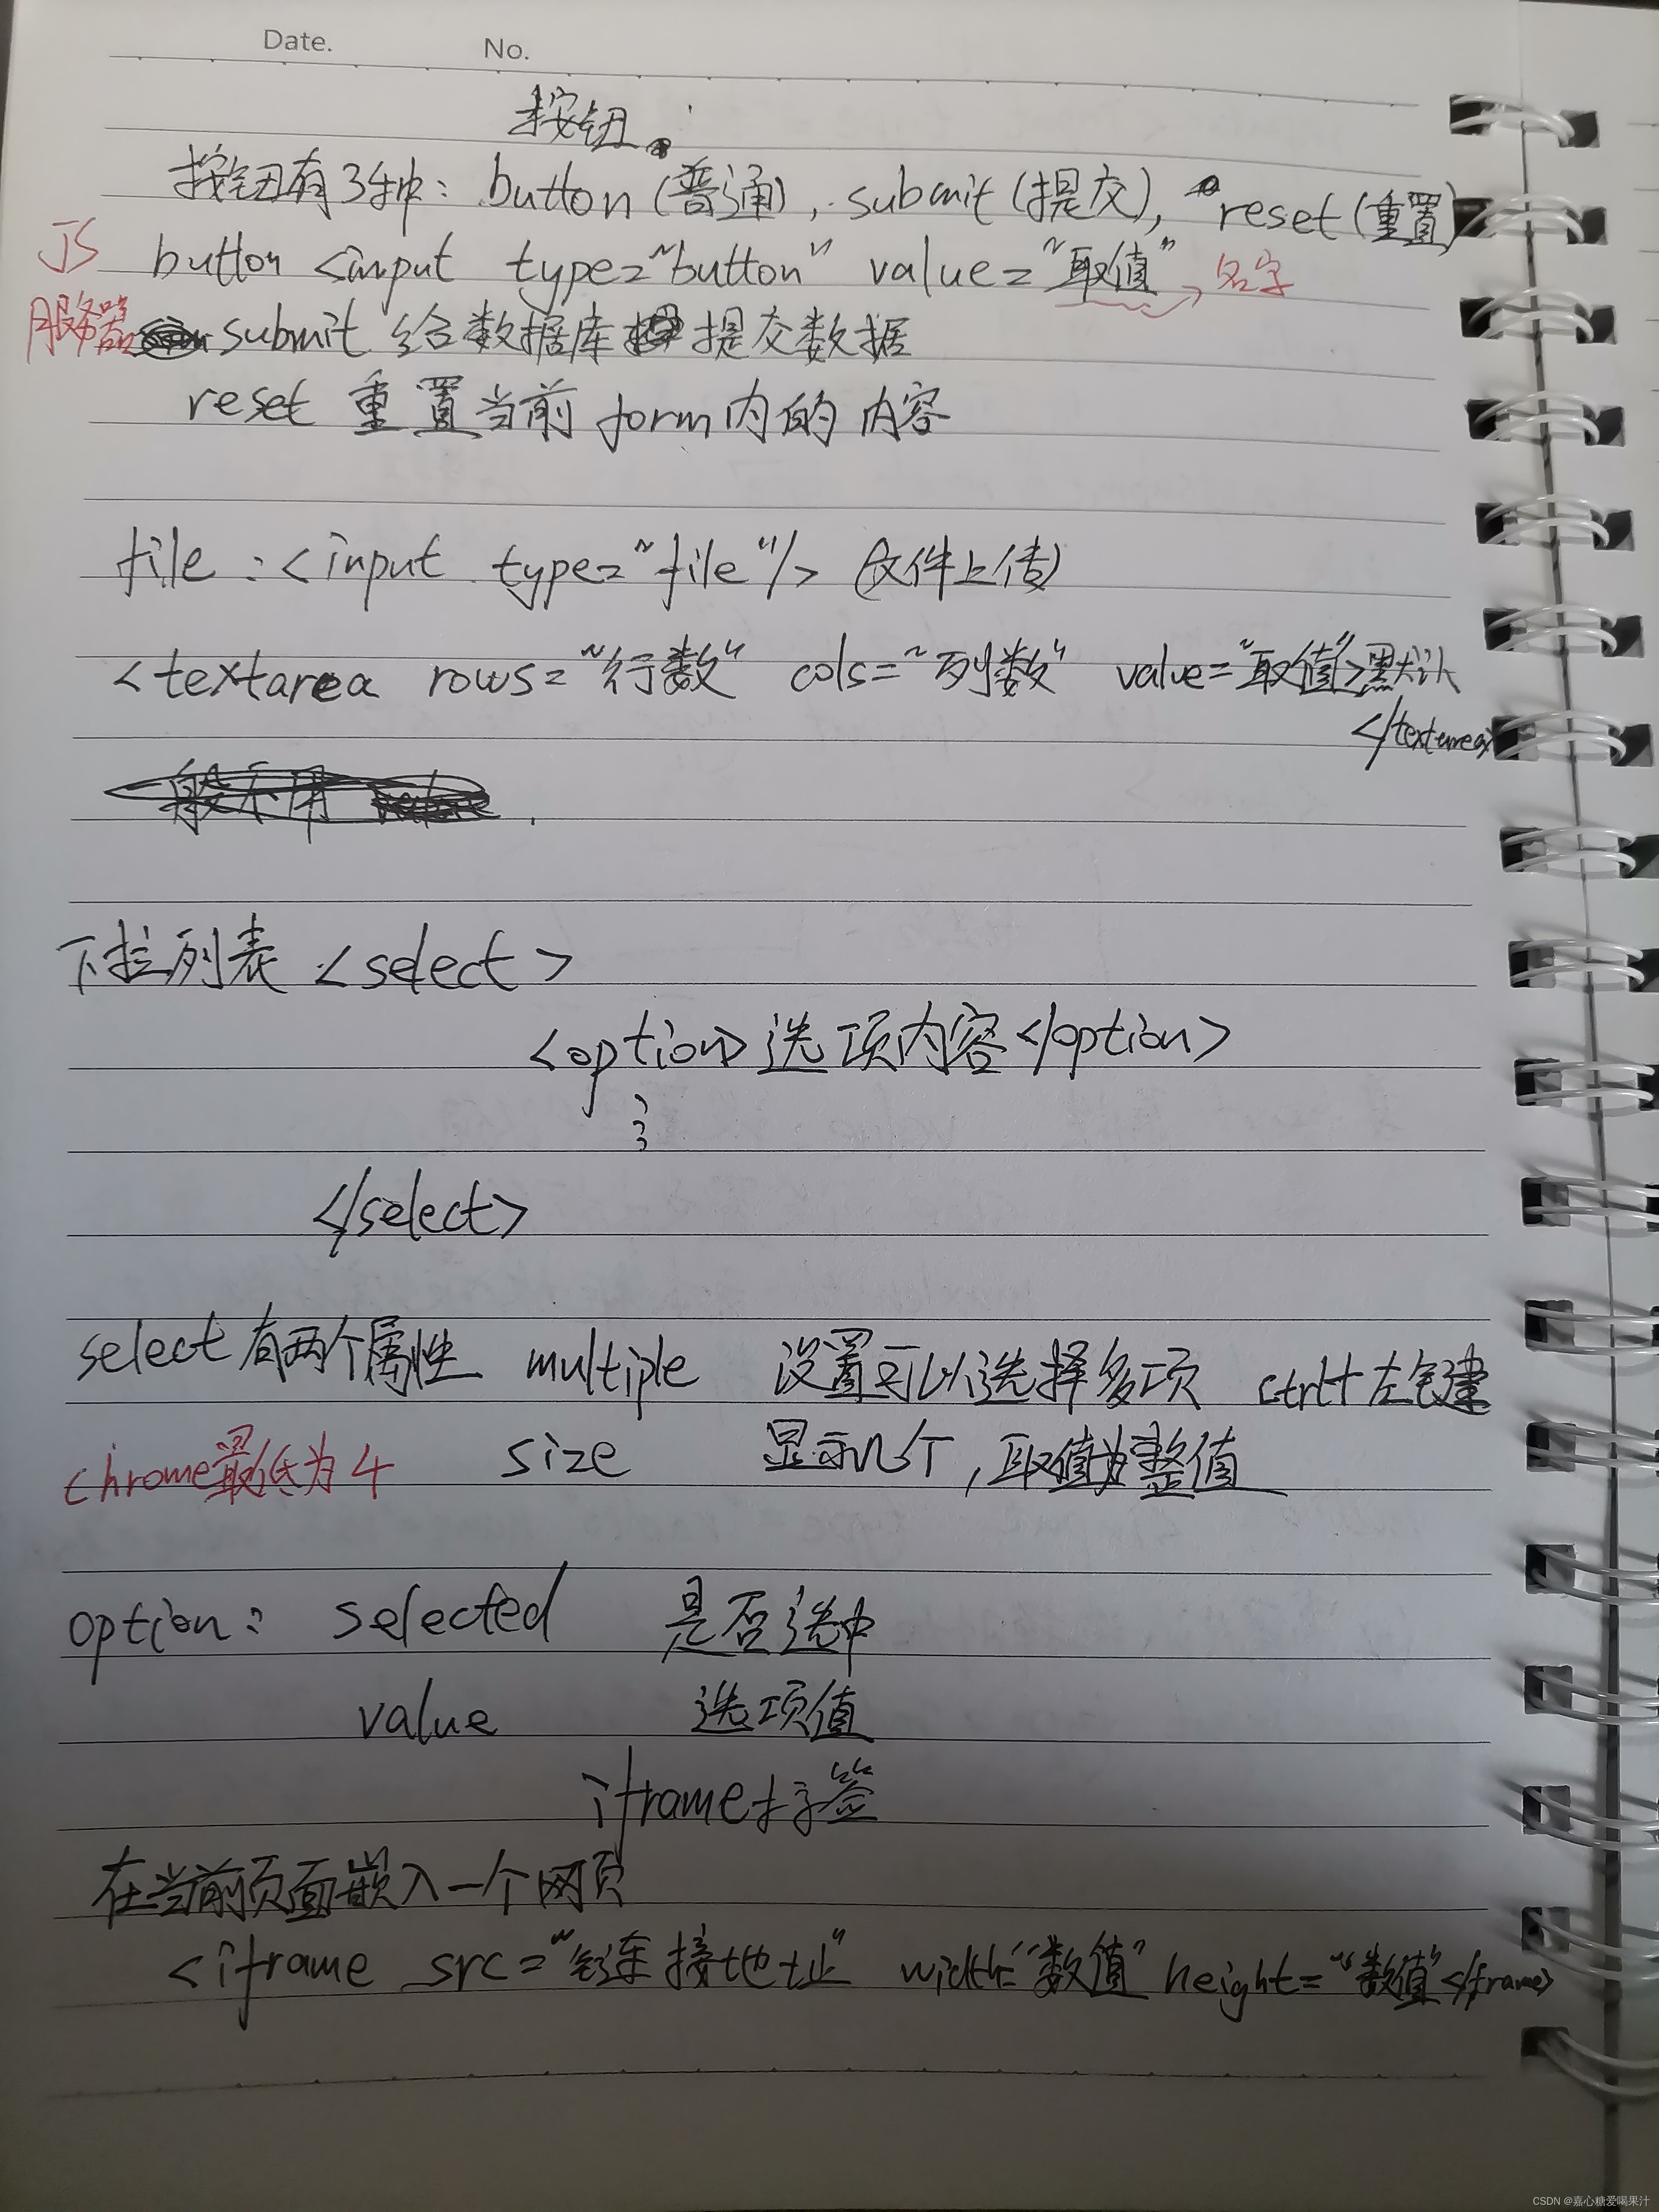 Date. No.
按钮。
按钮有3种: button (普通), submit (提交), reset (重置)
JS button <input type="button" value="取值" → 名字
服务器 submit 给数据库 提交数据
reset 重置当前 form内的内容
file : <input type="file"/> (文件上传)
<textarea rows="行数" cols="列数" value="取值">默认
</textarea>
一般不用
下拉列表 <select>
<option>选项内容</option>
</select>
select有两个属性 multiple 设置可以选择多项 ctrl+左键
chrome最低为4 size 显示几个,取值为整值
option: selected 是否选中
value 选项值
iframe标签
在当前页面嵌入一个网页
<iframe src="链接地址" width="数值" height="数值"</frame>
CSDN @嘉心糖爱喝果汁